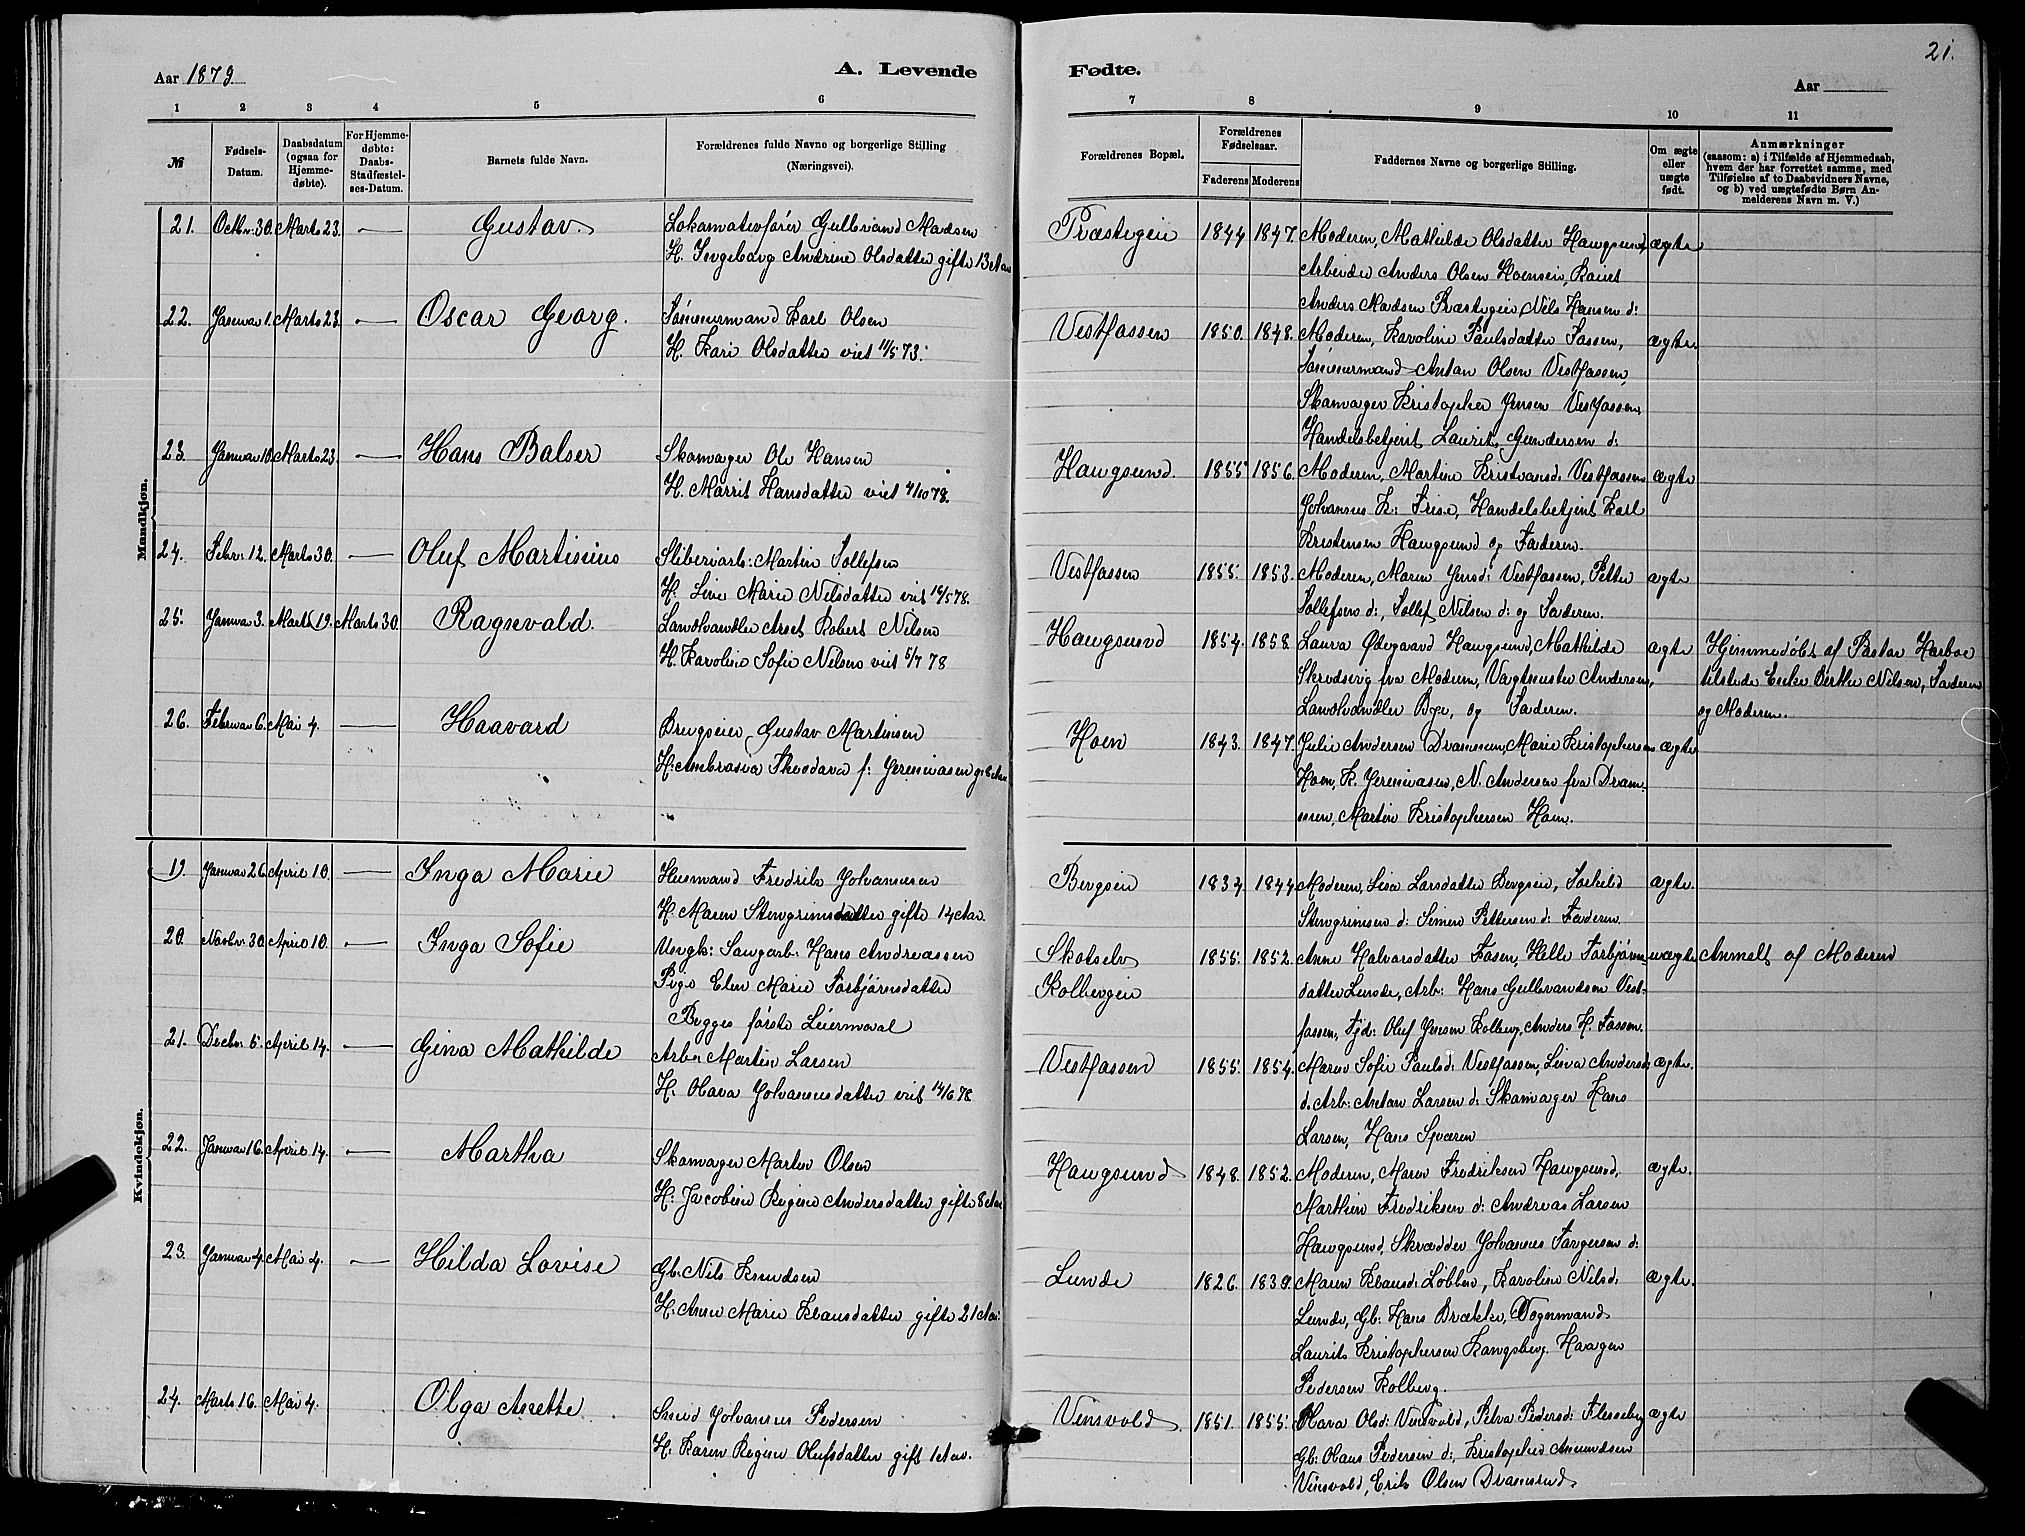 21.
Aar 1879
A. Levende
Fødte.
Aar
1 2 3 4 5 6 7 8 9 10 11
№
Fødsels-
Datum.
Daabsdatum
(ogsaa for
Hjemme-
døbte).
For Hjemme-
døbte:
Daabs-
Stadfæstel-
ses-Datum.
Barnets fulde Navn.
Forældrenes fulde Navne og borgerlige Stilling
(Næringsvei).
Forældrenes Bopæl.
Forældrenes
Fødselsaar.
Faderens Moderens
Faddernes Navne og borgerlige Stilling.
Om ægte
eller
uægte
født.
Anmærkninger
(saasom: a) i Tilfælde af Hjemmedaab,
hvem der har forrettet samme, med
Tilføielse af to Daabsvidners Navne,
og b) ved uægtefødte Børn An-
melderens Navn m. V.)
Mandkjøn.
21. Octbr. 30. Marts 23. — Gustav.
Lokomativfører Gulbrand Madsen
H. Ingeborg Andrine Olsdatter gifte 13 Aar
Præstegein 1844 1847.
Moderen, Mathilde Olsdatter Haugsund, ægte
Arbeider Anders Olsen Hoensein,
Anders Madsen Præstegein, Nils Hansen d:
22. Januar 1. Marts 23. — Oscar Georg.
Tømmermand Karl Olsen
H. Kari Olsdatter viet 11/5 73.
Vestfossen 1850. 1848.
Moderen, Karoline Paulsdatter Fossen, ægte.
Tømmermand Anton Olsen Vestfossen,
Skomager Kristopher Jensen Vestfossen,
Handelsbetjent Laurits Gundersen d:
23. Januar 10. Marts 23. — Hans Balser
Skomager Ole Hansen
H. Marrit Hansdatter viet 4/10 78.
Haugsund. 1855 1856.
Moderen, Martine Kristiansd: Vestfossen ægte
Johannes K: Frise, Handelsbetjent Karl
Kristensen Haugsund og Faderen.
24. Febr. 12. Marts 30. — Oluf Martinius
Sliberiarb: Martin Tollefsen
H. Line Marie Nilsdatter viet 14/5 78.
Vestfossen 1855. 1853.
Moderen, Maren Jensd: Vestfossen, Petter ægte
Tollefsens d:, Tollef Nilsen d: og Faderen.
25. Januar 3. Marts 19. Marts 30. Ragnvald.
Landhandler Robert Nilsen
H. Karoline Sofie Nilsens viet 5/7 78
Haugsund 1854. 1858.
Laura Ødegaard Haugsund, Mathilde ægte
fra Modum, Vagtmester Andersen,
Landhandler Bye, og Faderen.
Hjemmedøbt af Pastor Harboe
tilstede Enke Berthe Nilsen, Faderen
og Moderen.
26. Februar 6. Mai 4. — Haavard
Brugseier Gustav Martinsen
H: Ambrosia Theodora f: Jeremiassen
Hoen 1843. 1847.
Julie Andersen Drammen, Marie Kristophersen ægte
Hoen, K. Jeremiasen, N. Andersen fra Dram-
men, Martin Kristophersen Hoen.
Kvindekjøn.
19. Januar 26. April 10. — Inga Marie
Husmand Fredrik Johannesen
H. Maren Stengrimsdatter gifte 14 Aar.
Bergsein 1834 1844.
Moderen, Lisa Larsdatter Bergsein, Torkild ægte.
Stengrimsen d: Simen Pettersen d: Faderen.
20. Novbr. 30. April 10. — Inga Sofie
Ungk: Saugarb: Hans Andreassen
Pige Elen Marie Torbjørnsdatter
Begges første Leiermaal
Skotselv
Kolbergein
1855. 1852.
Anne Halvorsdatter Fosen, Helle Torbjørns- uægte
datter Lunde, Arb: Hans Gulbrandsen Vest-
fossen, Tjd: Oluf Jensen Kolberg, Anders H. Fossen.
Anmelt af Moderen
21. Decbr. 5. April 14. — Gina Mathilde
Arb: Martin Larsen
H. Olava Johannesdatter viet 14/6 78
Vestfossen 1855. 1854.
Maren Sofie Paulsd: Vestfossen, Lina Andersd: ægte.
d: Arb: Anton Larsen d: Skomager Hans
Larsen, Hans Sværen
22. Januar 16. April 14. — Martha
Skomager Martin Olsen
H. Jacobine Regine Andersdatter gifte 8 Aar
Haugsund 1848. 1852.
Moderen, Maren Fredriksen Haugsund, ægte.
Marthin Fredriksen d: Andreas Larsen
Haugsund, Skrædder Johannes Torgersen d:
23. Januar 4. Mai 4. — Hilda Lovise
Gb: Nils Knudsen
H: Anne Marie Klausdatter gifte 21 Aar.
Lunde 1826. 1839.
Maren Klausd: Løbben, Karoline Nilsd: ægte.
Lunde, Gb: Hans Brække, Vognmand
Laurits Kristophersen Kongsberg, Haagen
Pedersen Kolberg.
24. Marts 16. Mai 4. Olga Anette
Smed Johannes Pedersen
H. Karen Regine Olufsdatter gift 1 Aar.
Vinsvold 1851. 1855.
Olava Olsd: Vinsvold, Petra Pedersd: Flesseberg ægte
Gb: Hans Pedersen d: Kristopher Amundsen
Vinsvold, Erik Olsen Dramsrud.